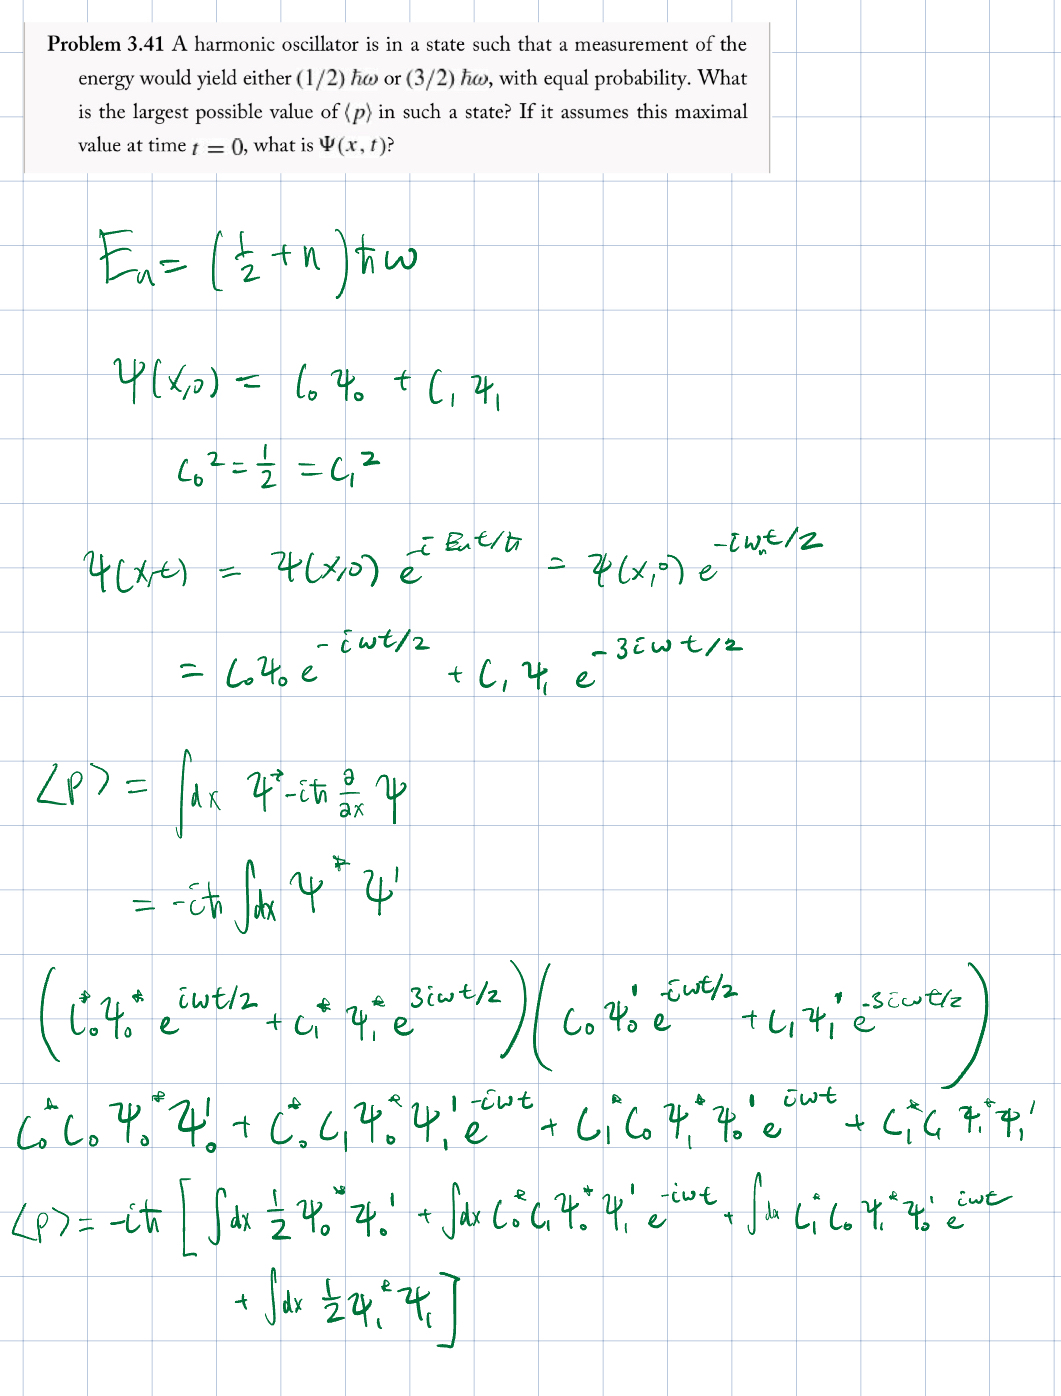 Problem 3.41 A harmonic oscillator is in a state such that a measurement of the
energy would yield either (1/2) ℏω or (3/2) ℏω, with equal probability. What
is the largest possible value of ⟨p⟩ in such a state? If it assumes this maximal
value at time t = 0, what is Ψ(x, t)?
Eₙ = (1/2 + n) ℏω
Ψ(x,0) = C₀ψ₀ + C₁ψ₁
C₀² = 1/2 = C₁²
Ψ(x,t) = Ψ(x,0) e^{-iEₙt/ℏ} = Ψ(x,0) e^{-iωₙt/2}
= C₀ψ₀ e^{-iωt/2} + C₁ψ₁ e^{-3iωt/2}
⟨p⟩ = ∫dx Ψ* -iℏ ∂/∂x Ψ
= -iℏ ∫dx Ψ* Ψ'
(C₀*ψ₀* e^{iωt/2} + C₁*ψ₁* e^{3iωt/2})(C₀ψ₀' e^{-iωt/2} + C₁ψ₁' e^{-3iωt/2})
C₀*C₀ψ₀*ψ₀' + C₀*C₁ψ₀*ψ₁' e^{-iωt} + C₁*C₀ψ₁*ψ₀' e^{iωt} + C₁*C₁ψ₁*ψ₁'
⟨p⟩ = -iℏ [∫dx 1/2 ψ₀*ψ₀' + ∫dx C₀*C₁ψ₀*ψ₁' e^{-iωt} + ∫dx C₁*C₀ψ₁*ψ₀' e^{iωt}
+ ∫dx 1/2 ψ₁*ψ₁]